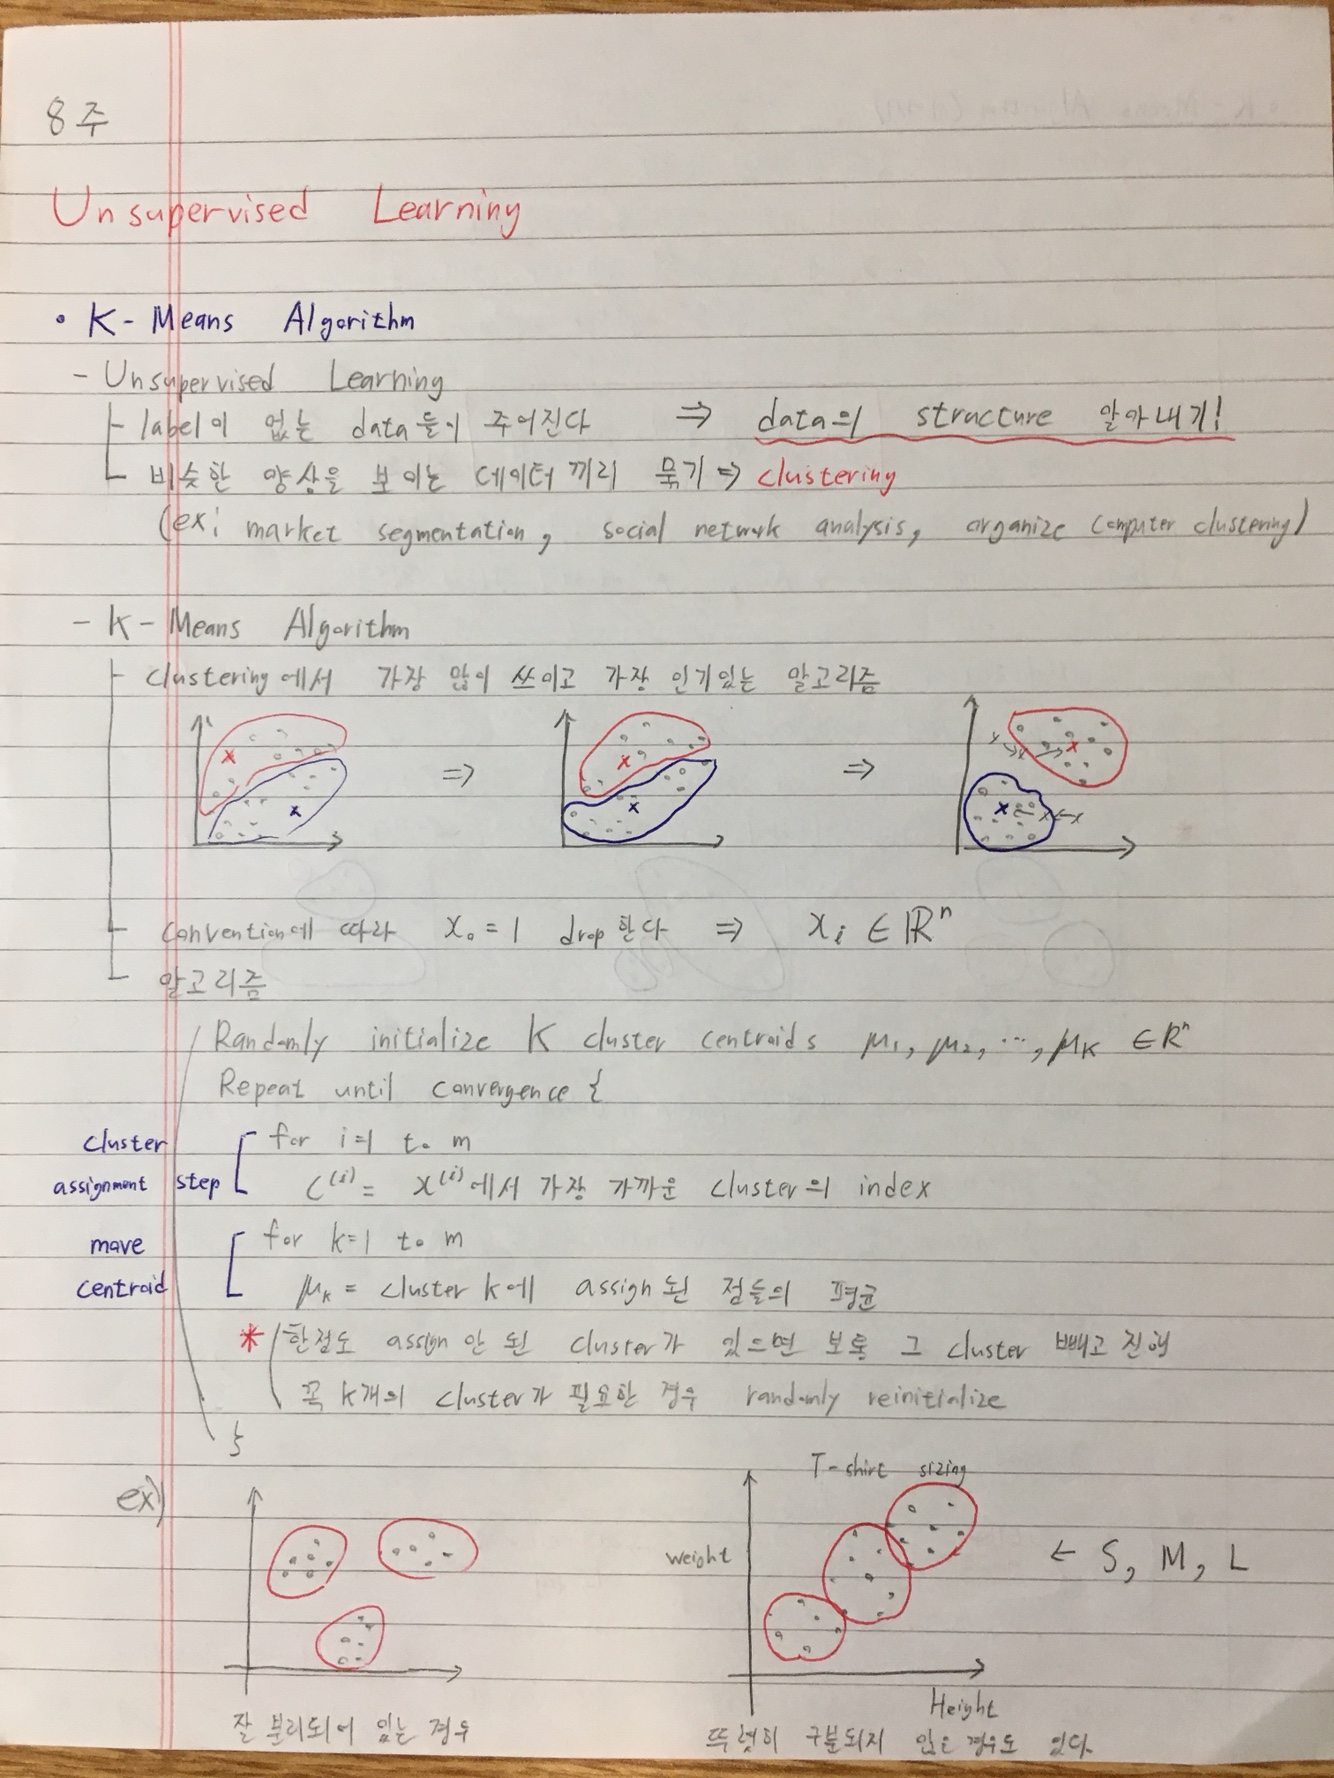 8주
Unsupervised Learning
• K-Means Algorithm
- Unsupervised Learning
label이 없는 data들이 주어진다 ⇒ data의 structure 알아내기!
비슷한 양상을 보이는 데이터끼리 묶기 ⇒ clustering
(ex; market segmentation, social network analysis, organize computer clustering)
- K-Means Algorithm
clustering에서 가장 많이 쓰이고 가장 인기있는 알고리즘
x ⇒ x ⇒ x
x x x
convention에 따라 x₀ = 1 drop한다 ⇒ xᵢ ∈ ℝⁿ
알고리즘
Randomly initialize K cluster centroids μ₁, μ₂, ..., μK ∈ ℝⁿ
Repeat until convergence {
cluster for i=1 to m
assignment step c⁽ⁱ⁾ = x⁽ⁱ⁾에서 가장 가까운 cluster의 index
move for k=1 to m
centroid μₖ = cluster k에 assign된 점들의 평균
* 한점도 assign 안 된 cluster가 있으면 보통 그 cluster 빼고 진행
꼭 K개의 cluster가 필요한 경우 randomly reinitialize
}
ex)
T-shirt sizing
weight ← S, M, L
Height
잘 분리되어 있는 경우 뚜렷히 구분되지 않은 경우도 있다.